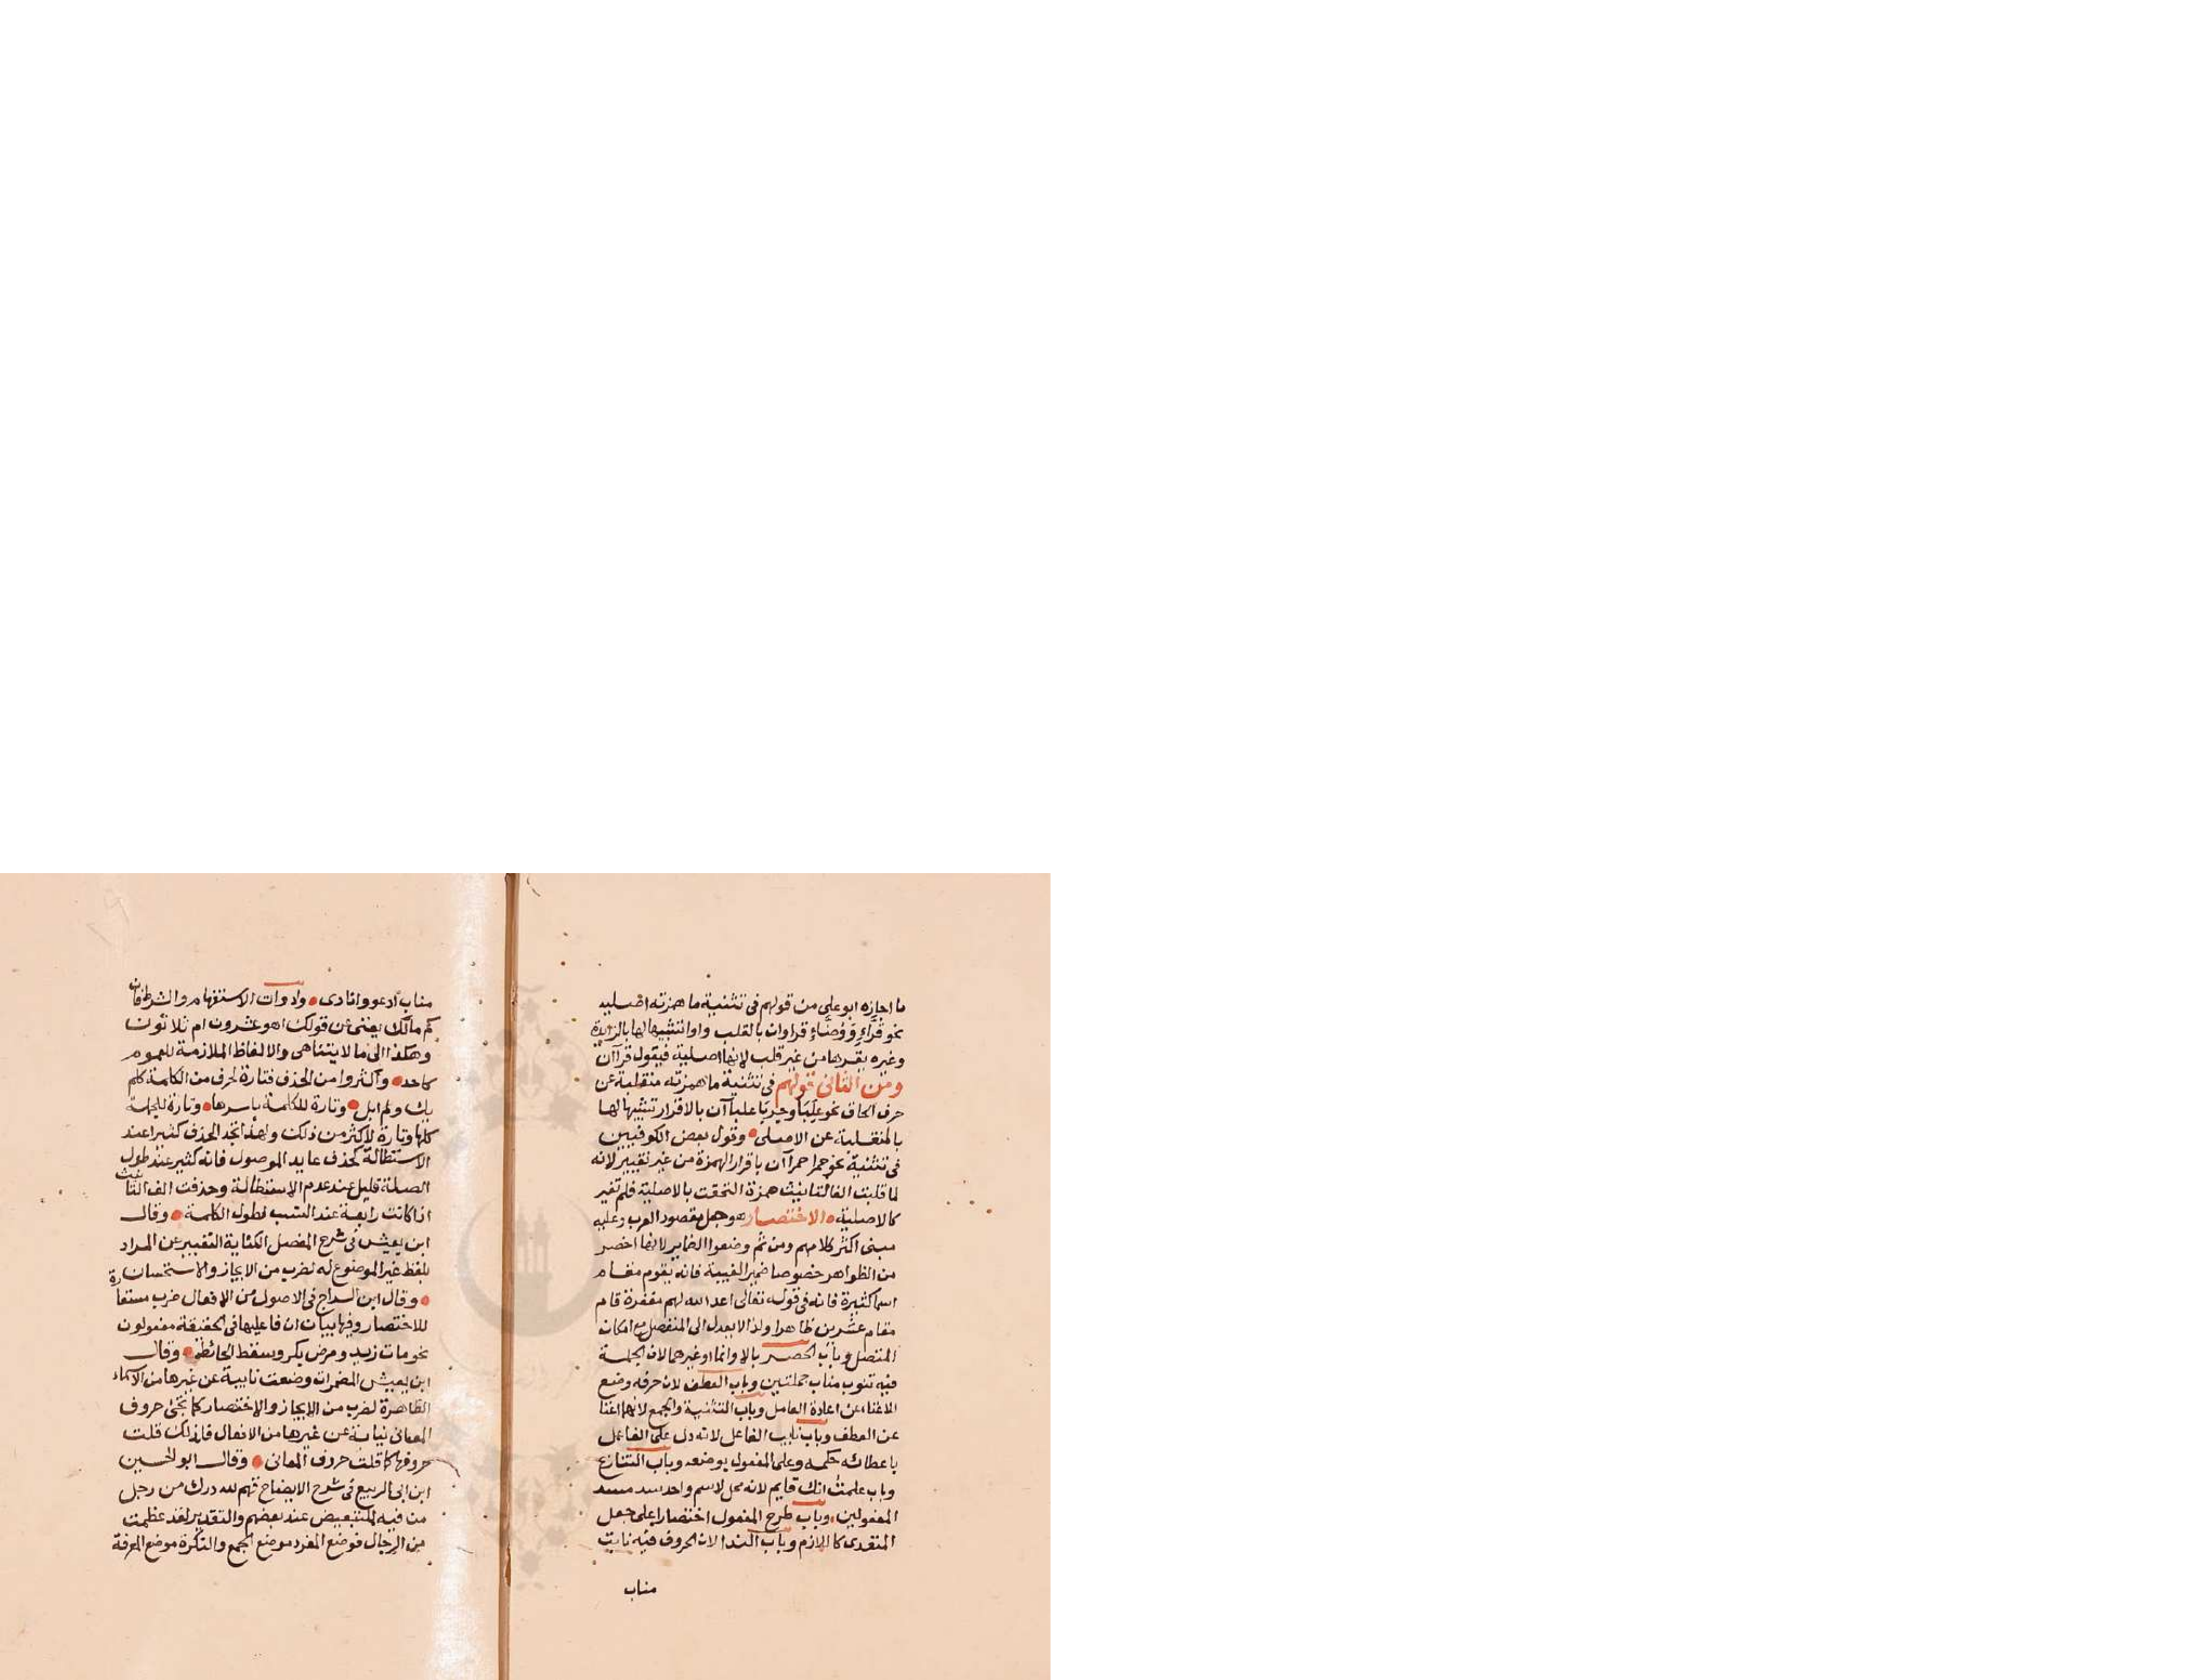 ما اجازه ابو علي من قولهم فى تثنية ما همزته اصليه
نحو قراء ووضاء قراوان بالقلب واوا تشبيها لها بالزايدة
وغيره يقرها من غير قلب لانها اصلية فيقول قرآآن
ومن الثانى قولهم فى تثنية ما همزته منقلبة عن
حرف الحاق نحو علبا وحربا علباآن بالاقرار تشبيها لها
بالمنقلبة عن الاصلى وقول بعض الكوفيين
فى تثنية نحو حمرا حمرآان باقرار الهمزة من غير تغيير لانه
لما قلبت الف التانيث همزة التحقت بالاصلية فلم تغير
كالاصلية الاختصار هو جل مقصود العرب وعليه
مبنى اكثر كلامهم ومن ثم وضعوا الضماير لانها اخصر
من الظواهر خصوصا ضمير الغيبة فانه يقوم مقام
اسما كثيرة فانه فى قوله تعالى اعد الله لهم مغفرة قام
مقام عشرين ظاهرا ولذا لا يعدل الى المنفصل مع امكان
المتصل وباب الحصر بالا وانما او غيرهما لان الجملة
فيه تنوب مناب جملتين وباب العطف لان حرفه وضع
للاغناء عن اعادة العامل وباب التثنية والجمع لانهما اغنا
عن العطف وباب نايب الفاعل لانه دل على الفاعل
باعطائه حكمه وعلى المفعول بوضعه وباب التنازع
وباب علمت انك قايم لانه محل لاسم واحد سد مسد
المفعولين وباب طرح المفعول اختصارا على جعل
المتعدى كاللازم وباب الندا لان الحروف فيه نايب
مناب
مناب ادعو وانادى وادوات الاستفهام والشرط فان
كم مالك يغنى عن قولك اهو عشرون ام ثلاثون
وهكذا الى ما لا يتناهى والالفاظ الملازمة للعموم
كاحد واكثروا من الحذف فتارة لحرف من الكلمة كلم
يك ولم ابل وتارة للكلمة باسرها وتارة للجملة
كلها وتارة لاكثر من ذلك ولهذا تجد الحذف كثيرا عند
الاستطالة كحذف عايد الموصول فانه كثير عند طول
الصلة قليل عند عدم الاستطالة وحذفت الف التانيث
اذا كانت رابعة عند النسب لطول الكلمة وقال
ابن يعيش فى شرح المفصل الكناية التعبير عن المراد
بلفظ غير الموضوع له لضرب من الايجاز والاستحسان
وقال ابن السراج فى الاصول من الافعال ضرب مستعارة
للاختصار وفيها بيان ان فاعليها فى الحقيقة مفعولون
نحو مات زيد ومرض بكر وسقط الحائط وقال
ابن يعيش المضمرات وضعت نايبة عن غيرها من الاسماء
الظاهرة لضرب من الايجاز والاختصار كما تجئ حروف
المعانى نيابة عن غيرها من الافعال فلذلك قلت
حروفها كما قلت حروف المعانى وقال ابو الحسين
ابن ابى الربيع فى شرح الايضاح قولهم لله درك من رجل
من فيه للتبعيض عند بعضهم والتقدير لقد عظمت
من الرجال فوضع المفرد موضع الجمع والنكرة موضع المعرفة